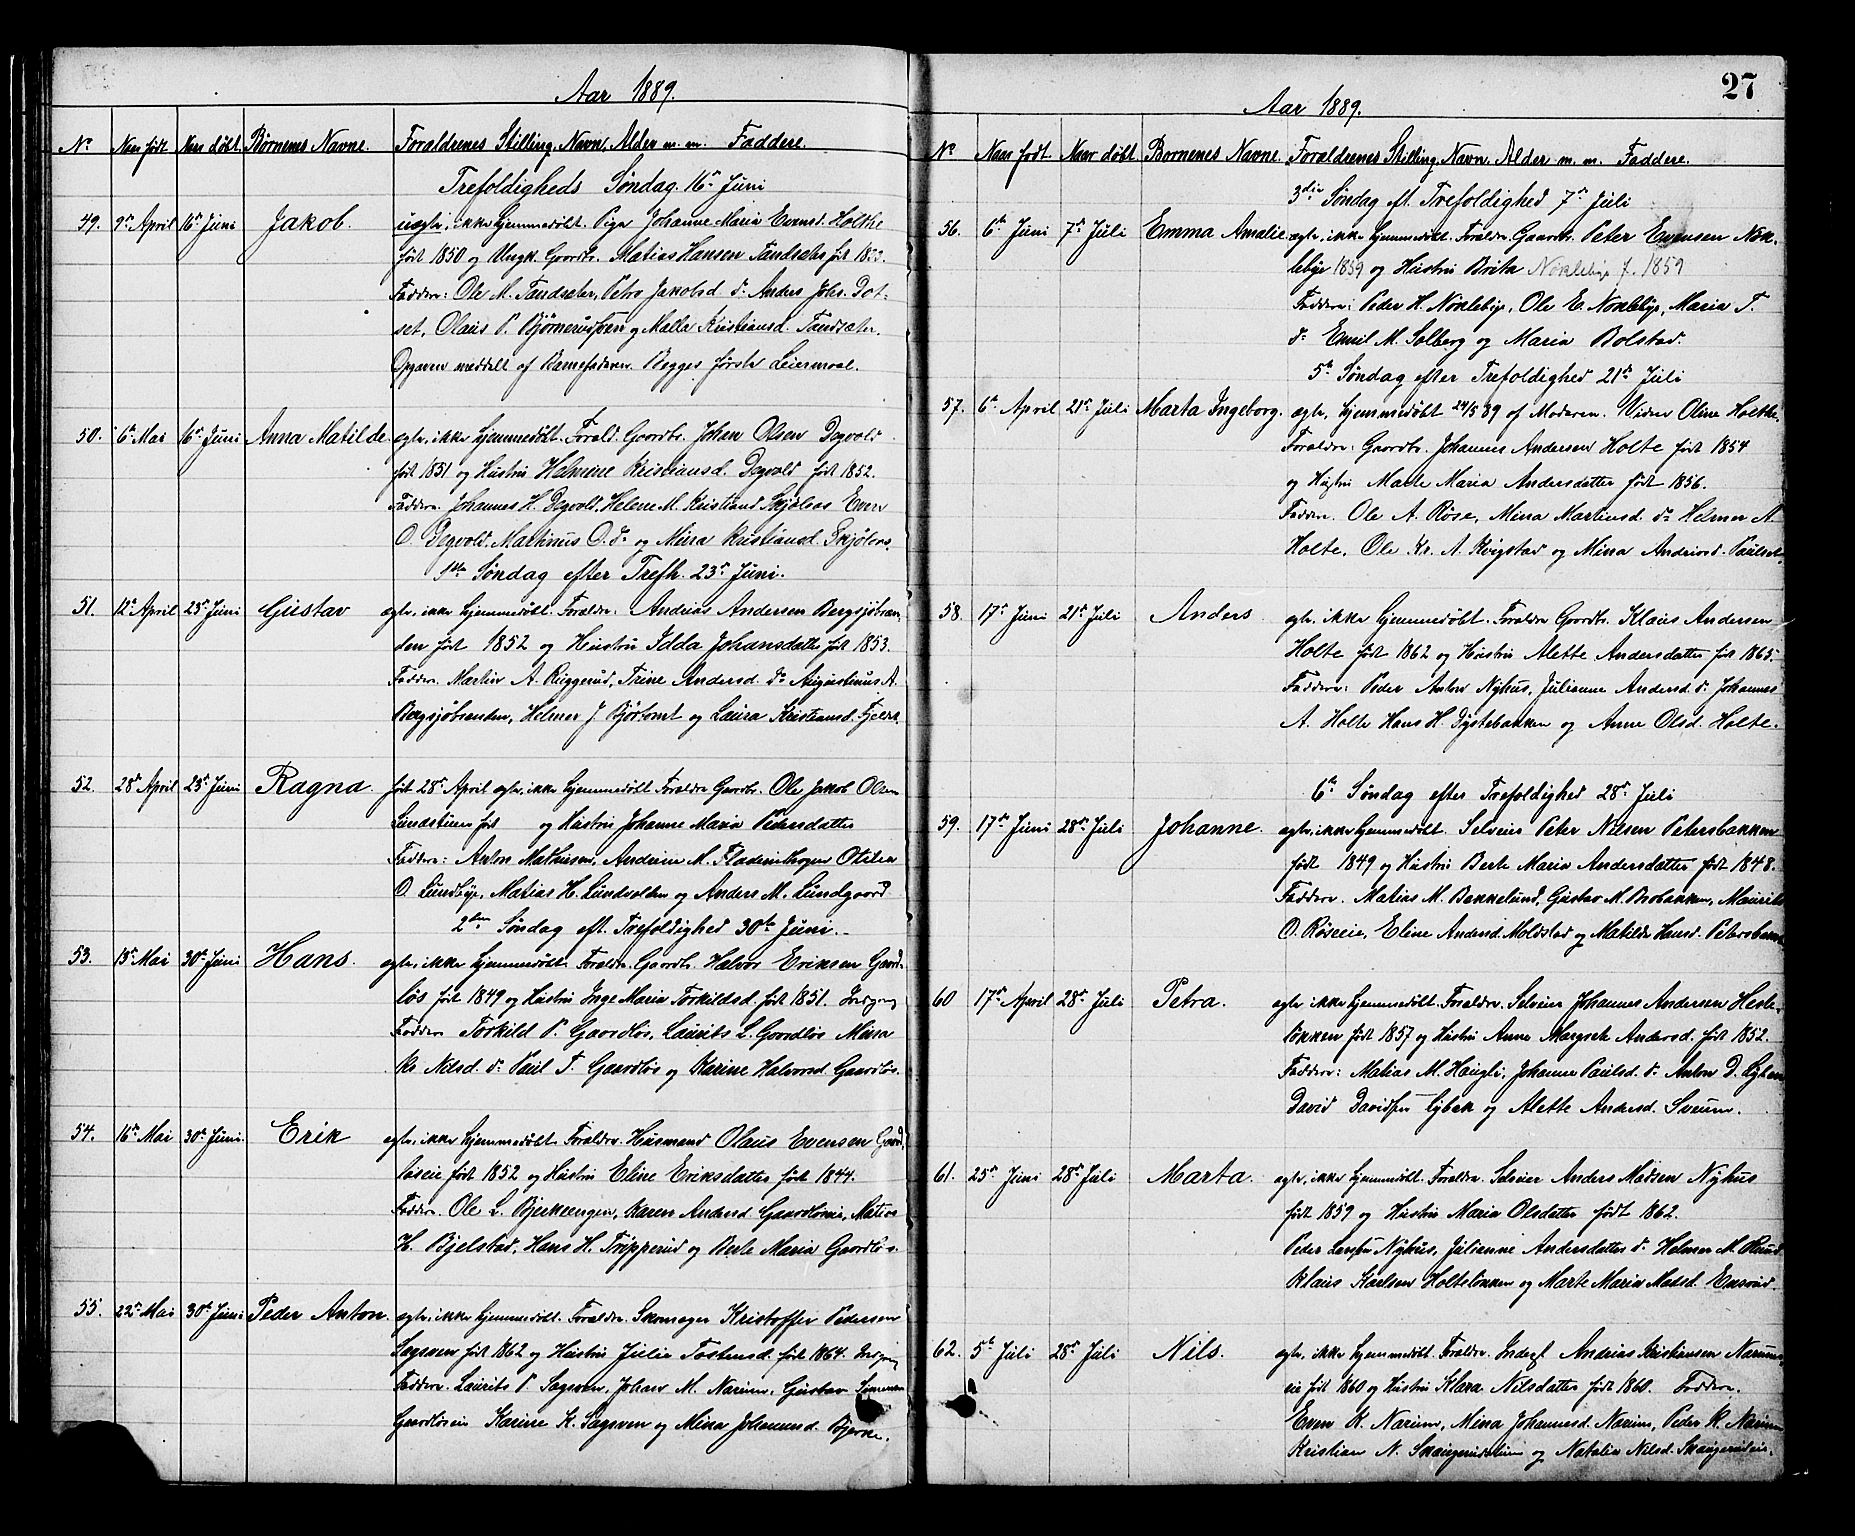 Aar 1889.
No Naar født Naar døbt Børnenes Navne. Forældrenes Stilling, Navn, Alder m. m. Faddere.
Trefoldigheds Søndag. 16de Juni
49. 9de April 16de Juni Jakob. uægte, ikke hjemmedøbt. Pige Johanne Maria Evensd. Holthe
født 1850 og Ungk. Gaardbr. Matias Hansen Tandsæter født
Faddere: Ole M. Tandsæter, Petra Jakobsd do Anders Johs. Dot-
set, Olaus P. Bjørnerud og Malla Kristiansd. Tandsæter.
Opgaven meddelt af Barnefaderen. Begges første Leiermaal.
50. 6te Mai 16de Juni Anna Matilde ægte, ikke hjemmedøbt. Foræld. Gaardbr. Johan Olsen Degvold
født 1851 og Hustru Helmine Kristiansd. Degvold født 1852.
Faddere. Johannes H. Degvold, Helene M. Kristiansd Skjølaas Even
O. Degvold, Martinus O. do og Mina Kristiansd. Skjølaas.
1ste Søndag efter Trefh. 23de Juni.
51. 12te April 23de Juni Gustav ægte, ikke hjemmedøbt. Forældre: Andreas Andersen Bergsjøstran-
den født 1852 og Hustru Idda Johansdatter født 1853.
Faddere. Martin A. Ruggerud, Trine Andersd. do Augustinus A.
Bergsjøstranden, Helmer J Bjørtomt og Laura Kristiansd.
52. 28de April 23de Juni Ragna. født 28de April ægte, ikke hjemmedøbt Forældre Gaardbr. Ole Jakob Olsen
Lundstuen født og Hustru Johanne Maria Pedersdatter
Faddere: Anton Mathiesen, Andrine M. Fladerudhagen Otilia
O. Lundbye, Matias H. Lundsveen og Anders M. Lundgaard
2den Søndag eft. Trefoldighed 30te Juni.
53. 13de Mai 30te Juni Hans. ægte, ikke hjemmedøbt. Forældre. Gaardbr. Halvor Eriksen Gaard-
løs født 1849 og Hustru Inge Maria Torkildsd. født 1851.
Faddere Torkild P. Gaardløs, Laurits L. Gaardløs Mina
Kr Nilsd. do Paul T. Gaardløs og Karine Halvorsd Gaardløs.
54. 16de Mai 30te Juni. Erik ægte, ikke hjemmedøbt. Forældre. Husmand Olaus Evensen Gaard-
løseie født 1852 og Hustru Eline Eriksdatter født 1844.
Faddere. Ole L. Bjerkeengen, Karen Andersd. Gaardløseie, Matias
H. Bjelstad, Hans H. Tripperud og Berte Maria Gaardløs.
55. 22de Mai 30te Juni Peder Anton. ægte, ikke hjemmedøbt. Forældre. Skomager Kristoffer Pedersen
Sagsveen født 1862 og Hustru Julie Tostensd. født 1864.
Faddere. Laurits P. Sagsveen, Johan M. Narum, Gustav Simensen
Gaardløseie Karine K. Sagsven og Mina Johannesd. Bjerke.
27
Aar 1889.
No Naar født. Naar døbt Børnenes Navne Forældrenes Stilling, Navn, Alder m. m. Faddere.
3die Søndag eft. Trefoldighed 7de Juli
56. 6te Juni 7de Juli Emma Amalie ægte, ikke hjemmedøbt. Forældre. Gaardbr. Peter Evensen Nøk-
lebye 1859 og Hustru Brita Nøklebye f. 1859
Faddere: Peder H. Nøklebye, Ole E. Nøklebye, Maria T.
do Emil M. Solberg og Maria Bolstad.
5te Søndag efter Trefoldighed 21de Juli
57. 6te April 21de Juli Marta Ingeborg. ægte, hjemmedøbt 24/5 89 af Moderen. Vidner Oline Holthe.
Forældre: Gaardbr. Johannes Andersen Holte født 1854
og Hustru Marte Maria Andersdatter født 1856.
Faddere. Ole A. Røse, Mina Martinsd. do Helmer A.
Holte, Ole Kr. A. Kvigstad og Mina Andreasd. Paulset.
58. 17de Juni 21de Juli Anders ægte, ikke hjemmedøbt. Forældre Gaardbr. Klaus Andersen
Holte født 1862 og Hustru Alette Andersdatter født 1865.
Faddere: Peder Anton Nyhus, Julianne Andersd. do Johannes
A. Holte Hans H. Dystebakken og Anne Olsd. Holte.
6te Søndag efter Trefoldighed 28de Juli
59. 17de Juni 28de Juli Johanne. ægte, ikke hjemmedøbt. Selveier Peter Nilsen Petersbakken
født 1849 og Hustru Berte Maria Andersdatter født 1848.
Faddere. Matias M. Bekkelund, Gustav M. Brobakken, Maurits
O. Røseeie, Eline Andersd. Moldstad og Matilde Hansd. Petersbakken
60 17de April 28de Juli Petra. ægte ikke hjemmedøbt. Forældre. Selveier Johannes Andersen Hesle-
løkken født 1857 og Hustru Anne Margrete Andersd. født 1852.
Faddere: Matias M. Haugli, Johanne Paulsd. do Anton D. Lybæk
David Davidsen Lybæk og Alette Andersd. Sveum.
61. 25de Juni 28de Juli Marta. ægte, ikke hjemmedøbt. Forældre. Selveier Anders Madsen Nyhus
født 1859 og Hustru Maria Olsdatter født 1862.
Peder Larsen Nyhus, Julianne Andersdatter do Helmer M. Rud
Klaus Karlsen Holteløkken og Marte Maria Madsd. Ensrud.
62. 5te Juli 28de Juli Nils. ægte, ikke hjemmedøbt. Forældre. Inderst Andreas Kristiansen Narums-
eie født 1860 og Hustru Klara Nilsdatter født 1860. Faddere.
Even K. Narum, Mina Johannesd. Narum, Peder K. Narum
Kristian N. Skaugerudstuen og Natalia Nilsd. Skaugerudeie.